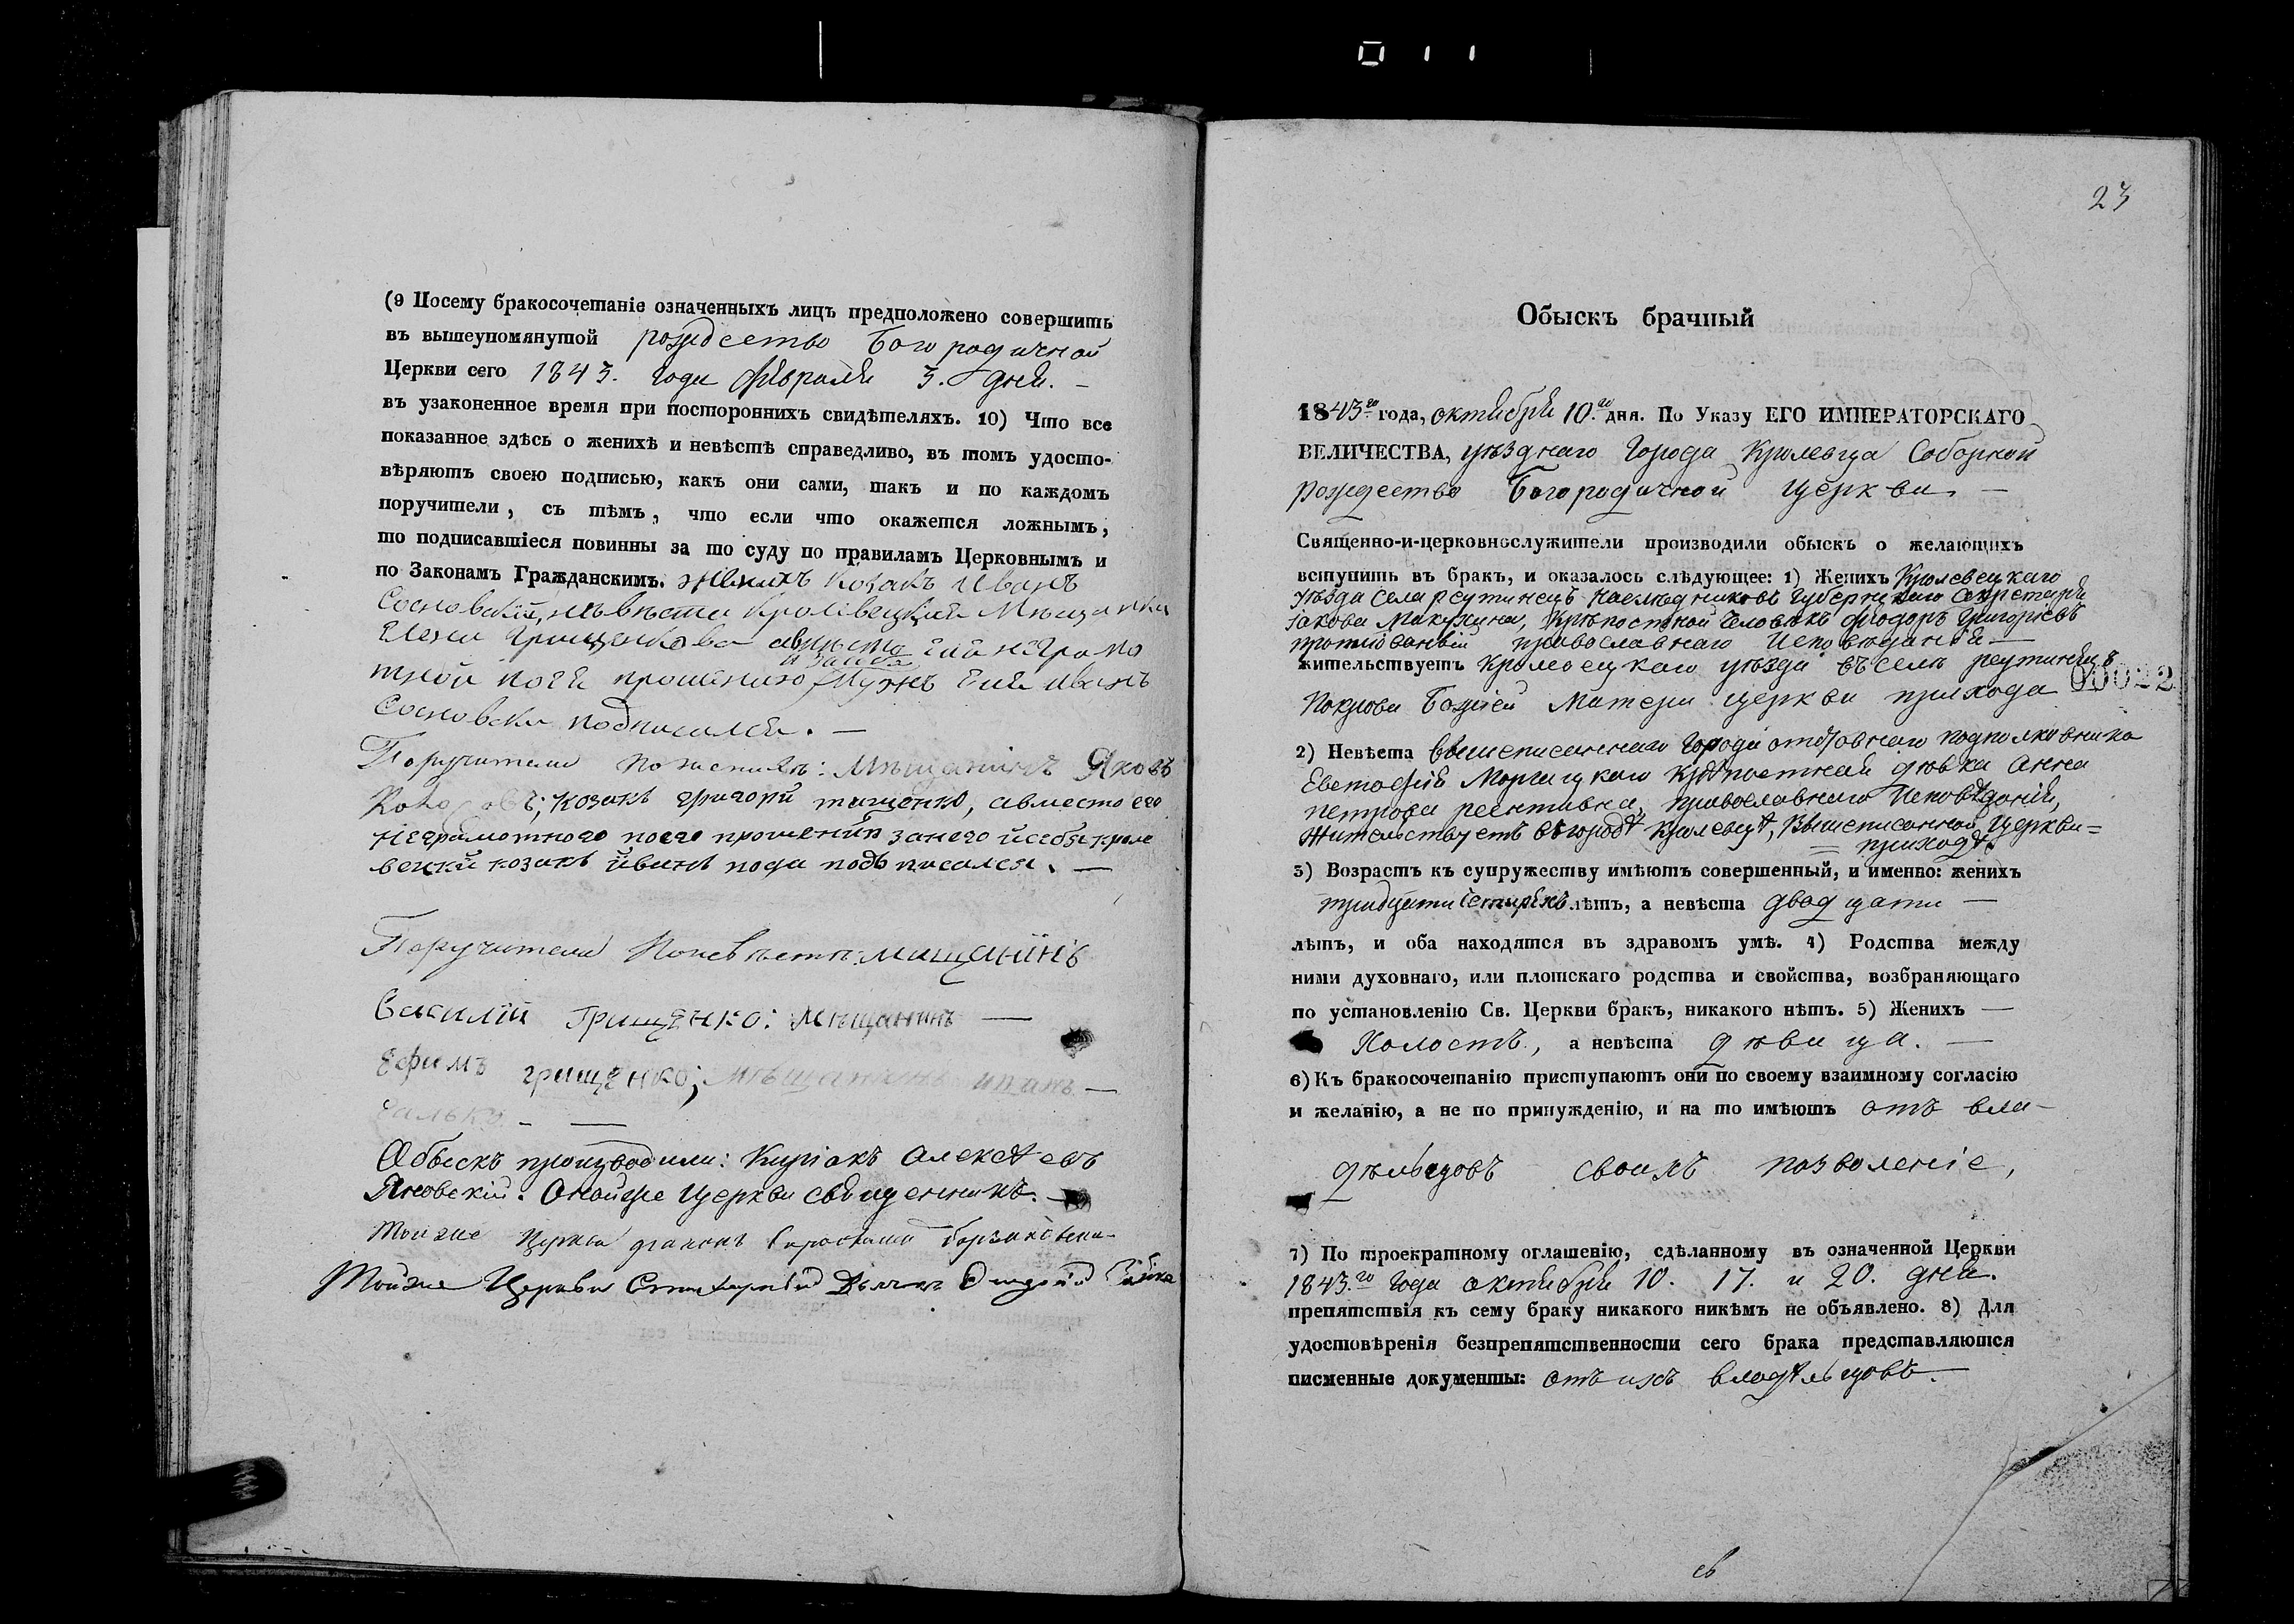 (9 Посему бракосочетаніе означенныхъ лицъ предположено совершить
въ вышеупомянутой рождество Богородичной
Церкви сего 1843. года февраля 3. дня. –
въ узаконенное время при постороннихъ свидѣтеляхъ. 10) Что все
показанное здѣсь о женихѣ и невѣстѣ справедливо, въ томъ удосто-
вѣряютъ своею подписью, какъ они сами, такъ и по каждомъ
поручители, съ тѣмъ, что если что окажется ложнымъ,
то подписавшіеся повинны за то суду по правиламъ Церковнымъ и
по Законамъ Гражданскимъ. женихъ козакъ Иванъ
Сосновскій, невѣста кролевецкая Мѣщанка
Елена Грищенкова авмѣсто ея неграмо
и за себя
тной по ея прошенію мужъ ея иванъ
Сосновски подписался. –
Поручители по женихѣ: Мѣщанинъ Яковъ
козакъ григори тищенко, авместо его
неграмотного по его прошенію за него и себя кроле
вецки козакъ иванъ подписался. –
Поручители по невѣсте: мищанинъ
Василий грищенко: мѣщанинъ –
Ефимъ грищенко; мѣщанинъ –
Обыскъ производили: Киріакъ Алексѣевъ
Яновскій. Онойже Церкви священникъ. –
Тойже Церкви діаконъ
Тойже Церкви Дьячек
011
23
Обыскъ брачный
1843го года, октября 10.го дня. По Указу ЕГО ИМПЕРАТОРСКАГО
ВЕЛИЧЕСТВА, уѣзднаго Города Кролевца Соборной
рождество Богородичной церкви. –
Священно-и-церковнослужители производили обыскъ о желающихъ
вступить въ бракъ, и оказалось слѣдующее: 1) Женихъ Кролевецкаго
уѣзда села реутинецъ наследниковъ губернскаго Секретаря
Іакова Макухина, Крѣпостной человѣкъ Ѳіодоръ Григоріевъ
православнаго исповѣданія –
жительствуетъ Кролевецкаго уѣзда въ селѣ реутинцѣ
00022
Покрова Божіей Матери церкви прихода
2) Невѣста вышеписаннаго города отставнаго подполковника
Евстафія крѣпостная дѣвка Анна
петрова православнаго исповѣданія,
жительствуетъ въ городѣ кролевцѣ, вышеписанной церкви =
= приходѣ.
3) Возрастъ къ супружеству имѣютъ совершенный, и именно: женихъ
тридцати четырехъ лѣтъ, а невѣста двадцати –
лѣтъ, и оба находятся въ здравомъ умѣ. 4) Родства между
ними духовнаго, или плотскаго родства и свойства, возбраняющаго
по установленію Св. Церкви бракъ, никакого нѣтъ. 5) Женихъ –
Холостъ, а невѣста дѣвица. –
6) Къ бракосочетанію приступаютъ они по своему взаимному согласію
и желанію, а не по принужденію, и на то имѣютъ отъ вла-
дѣльцовъ своихъ позволеніе,
7) По троекратному оглашенію, сдѣланному въ означенной Церкви
1843.го года октября 10. 17. и 20. дня.
препятствія къ сему браку никакого никѣмъ не объявлено. 8) Для
удостовѣренія безпрепятственности сего брака представляются
писменные документы: отъ ихъ владѣльцовъ. –